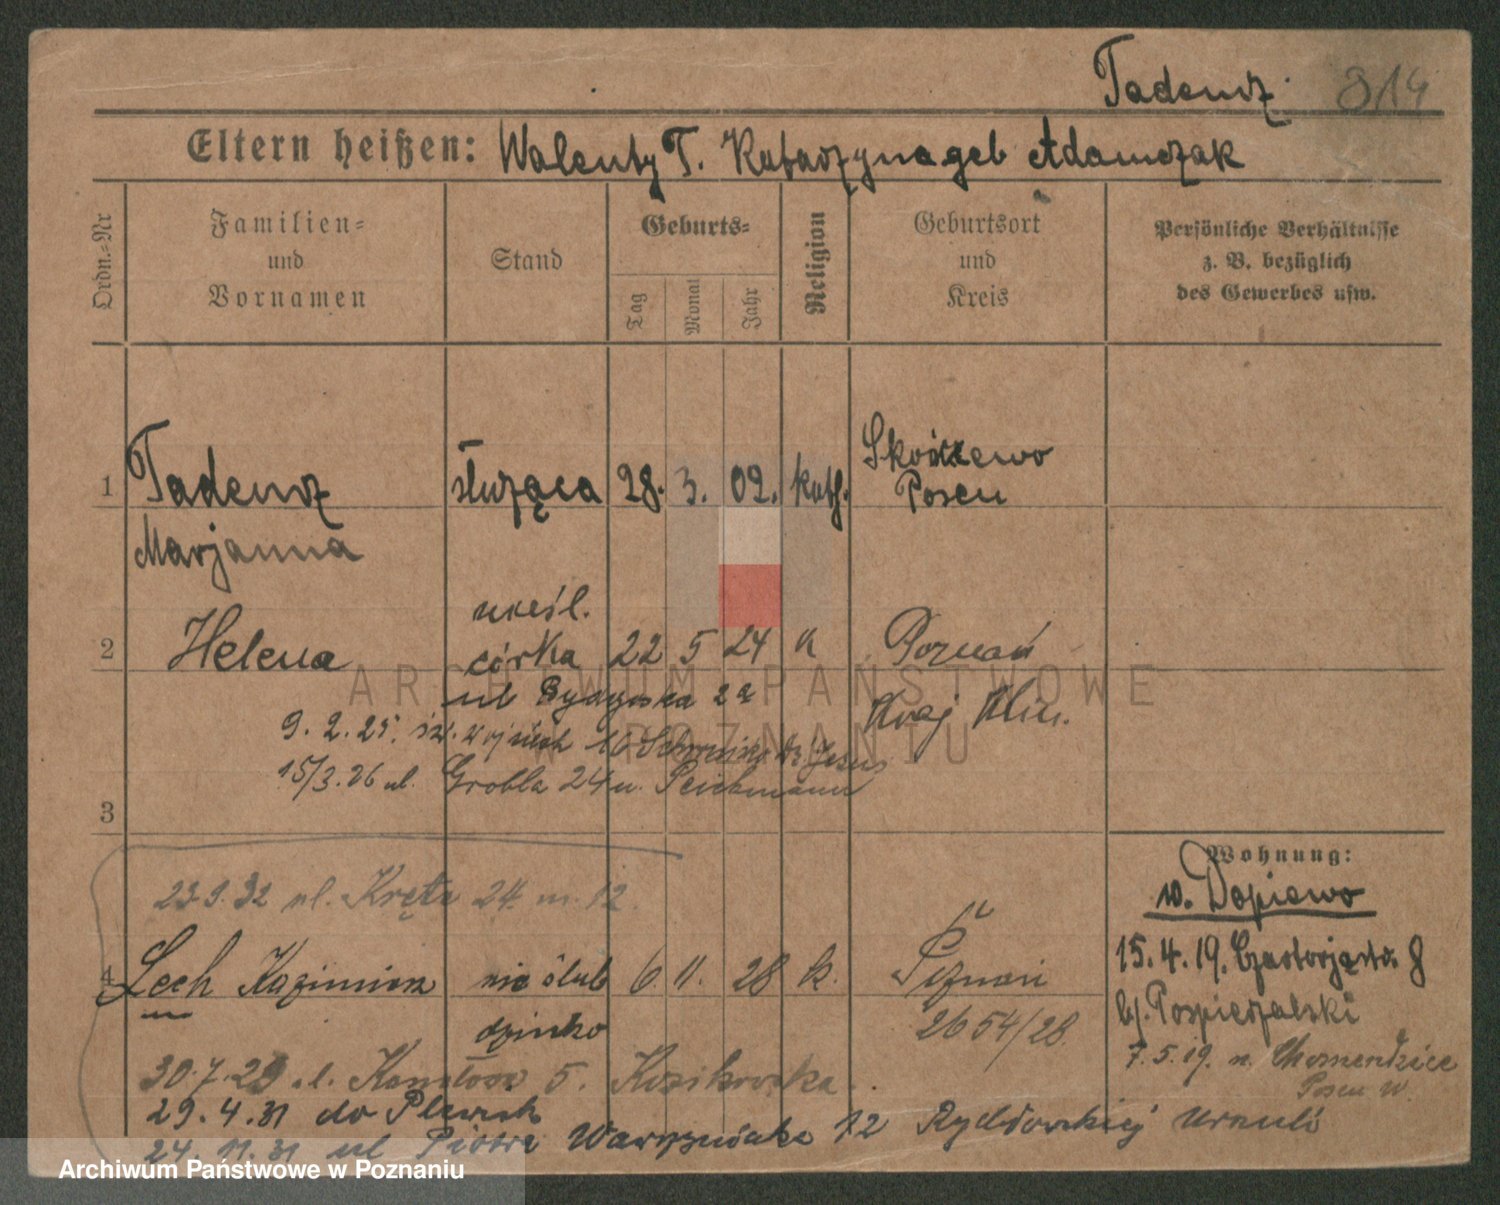 Tadeusz 314
Eltern heißen: Walenty T. Katarzyna geb Adamczak
Ordn.-Nr
Familien-
und
Vornamen
Stand
Geburts-
Tag
Monat
Jahr
Religion
Geburtsort
und
Kreis
Persönliche Verhältnisse
z. B. bezüglich
des Gewerbes usw.
1 Tadeusz służąca 28. 3. 02. kath. Skórzewo
Posen
Marjanna
nieśl.
2 Helena córka 22 5 24 k Poznań
ul Bydgoska 2a
9. 2. 25. św. Wojciech 16
15/3. 26 ul. Grobla 24 u.
3
Wohnung:
w. Dopiewo
23.9.32 ul. Kręta 24 m. 12.
15.4.19. 8
4 Lech Kazimierz nie ślub 6. 11. 28 k. Poznań
b/. Pospieszalski
dziecko 2654/28.
7.5.19. n. Chomendzice
Posen W.
30.7.29 ul. 5. Kozikowska
29.4.31 do Plewisk
24.11.31 ul Piotra Wawrzyniaka 12 Urszuli
Archiwum Państwowe w Poznaniu
ARCHIWUM PAŃSTWOWE
W POZNANIU